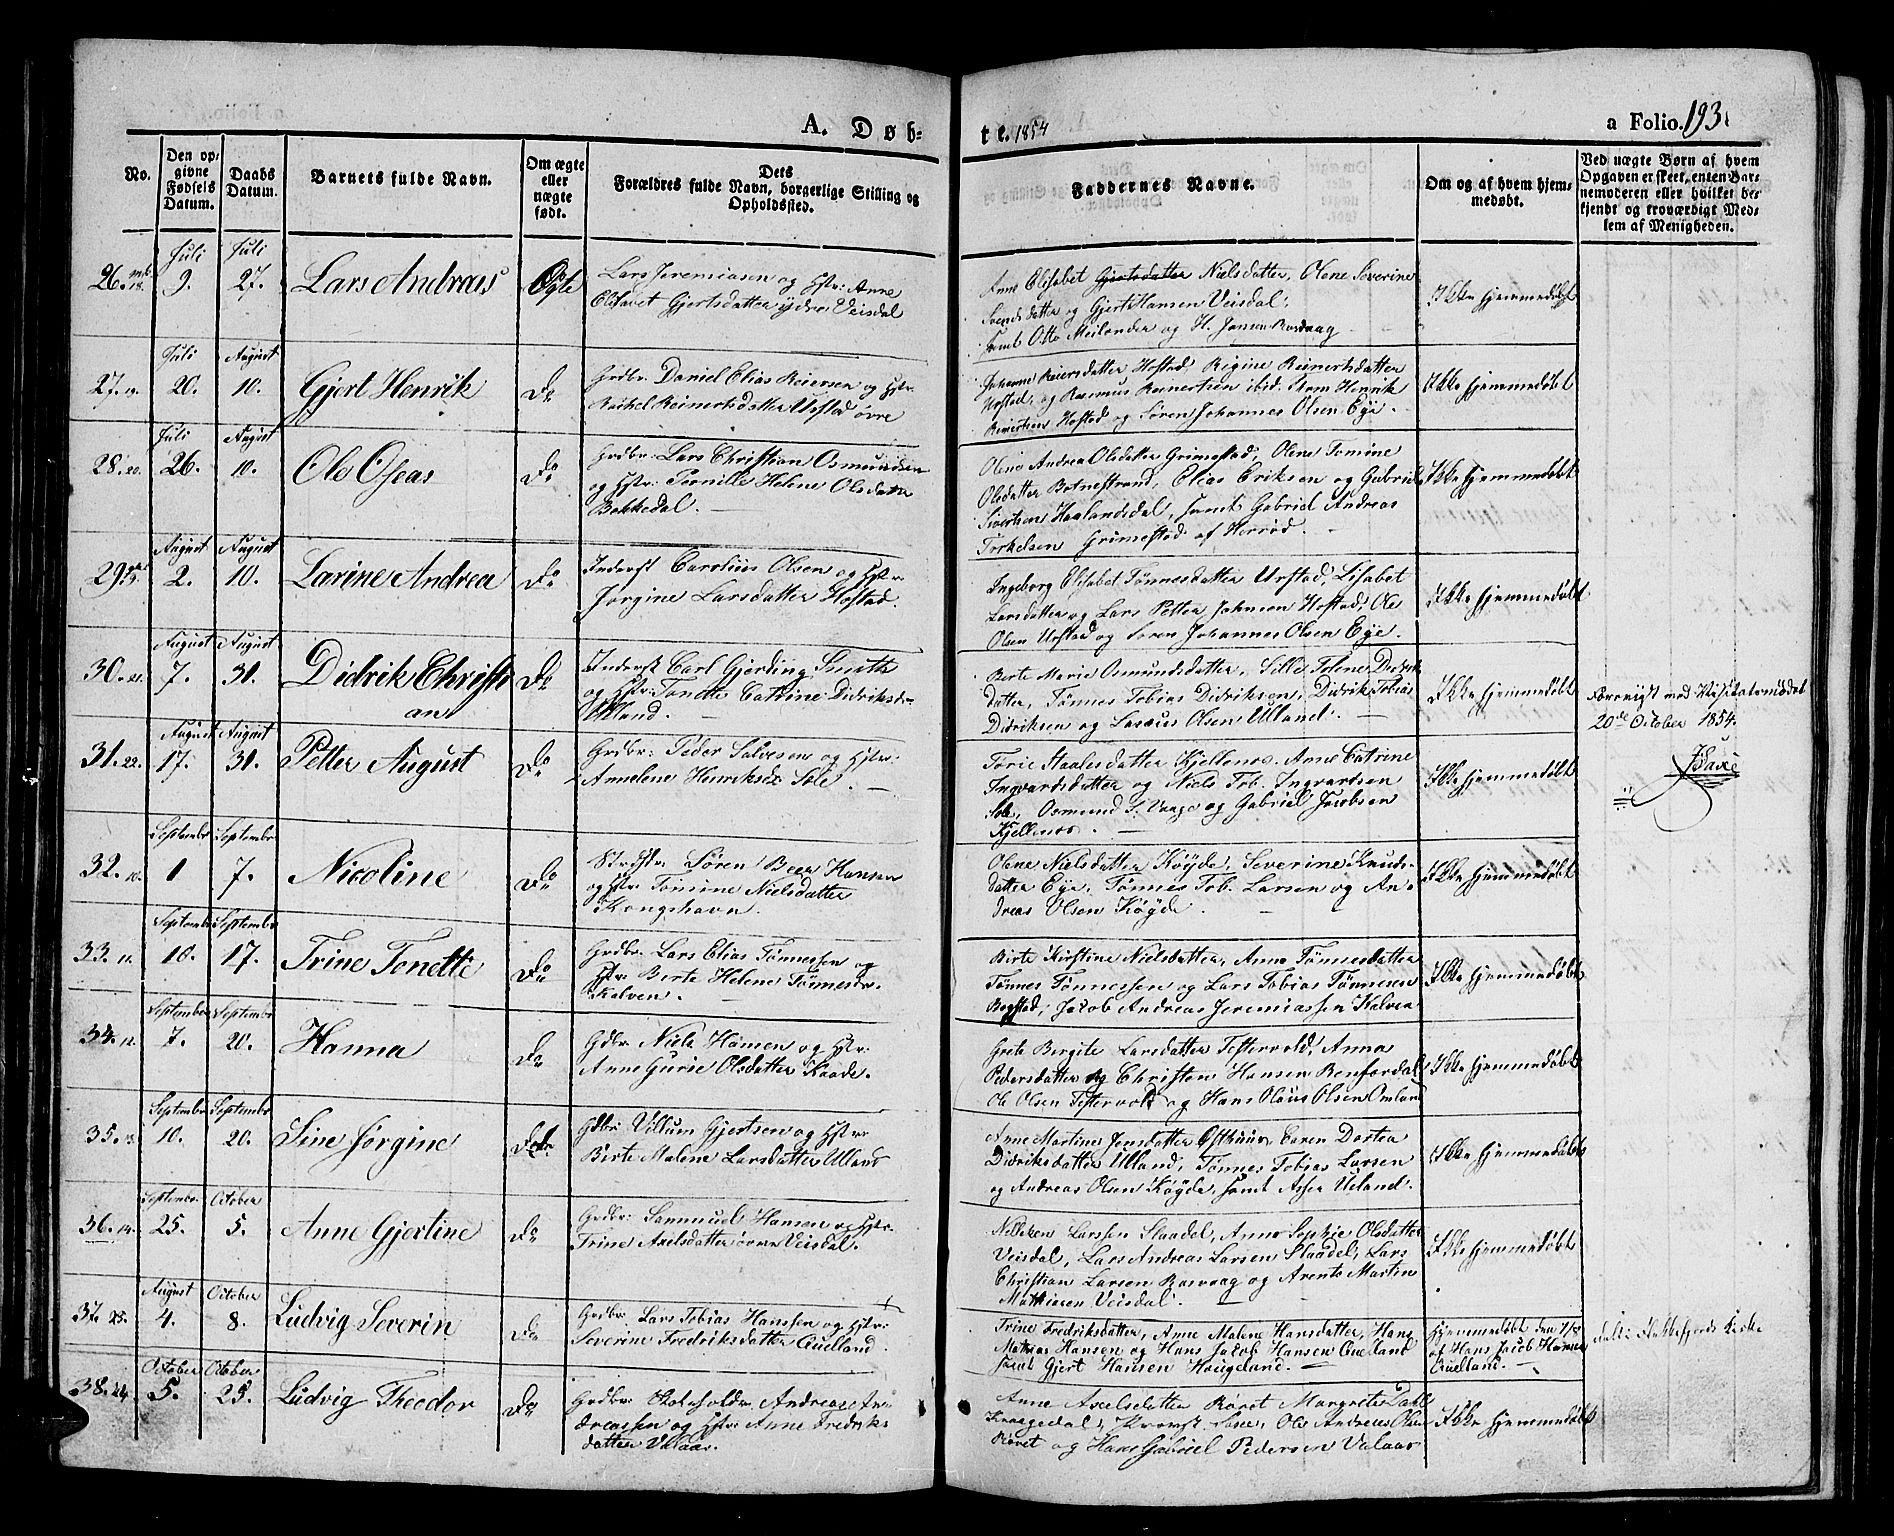 A. Døb-
te. 1854
a Folio. 193
No.
Den op-
givne
Fødsels
Datum.
Daabs
Datum.
Barnets fulde Navn.
Om ægte
eller
uægte
født.
Dets
Forældres fulde Navn, borgerlige Stilling og
Opholdssted.
Faddernes Navne.
Om og af hvem hjem-
medøbt.
Ved uægte Børn af hvem
Opgaven er skeet, enten Bar-
nemoderen eller hvilket be-
kjendt og troværdigt Med-
lem af Menigheden.
26. 18. Juli 9. Juli 27. Lars Andreas Ægte
Lars Jeremiasen og Hstr: Anne
Elisabet Gjertsdatter ydre Veisdal
Anne Elisabet Gjertsdatter Nielsdatter, Olene Severine
Svendsdatter og Gjert Hansen Veisdal,
samt Otto Meilænder og H. Jansen Rasvaag
Ikke hjemmedøbt
27. 19. Juli 20. August 10. Gjert Henrik Do
Grdbr: Daniel Elias Reiersen og Hstr:
Rachel Reinertsdatter Urstad øvre
Johanne Reiersdatter Hofstad, Regine Reinertsdatter
Urstad, og Rasmus Reinertsen ibid: Tron Henrik
Reinertsen Hofstad og Søren Johannes Olsen Eye.
Ikke hjemmedøbt
28. 20. Juli 26. August 10. Ole Oseas Do
Grdbr: Lars Christian Osmundsen
og Hstr: Pernille Helene Olsdatter
Bakkedal.
Olene Andrea Olsdatter Grimestad, Olene Tomine
Olsdatter Botnestrand, Elias Eriksen og Gabriel
Sivertsen Haalandsdal, samt Gabriel Andreas
Torkelsen Grimestad af Herrød.
Ikke hjemmedøbt
29. August 2. August 10. Larine Andrea Do
Inderst Carolius Olsen og Hstr:
Jørgine Larsdatter Hofstad.
Ingeborg Elisabet Tønnesdatter Urstad, Lisabet
Larsdatter og Lars Petter Johnsen Hofstad, Ole
Olsen Urstad og Søren Johannes Olsen Eye.
Ikke hjemmedøbt
30. 21. August 7. August 31. Didrik Christi
an Do
Inderst Carl Gjerding Smith
og Hstr: Tonette Catrine Didriksdr
Ulland.
Birte Marie Osmundsdatter, Sille Tolene Didriks
datter, Tønnes Tobias Didriksen, Didrik Tobias
Didriksen og Lasaus Olsen Ulland.
Ikke hjemmedøbt
Foreviist ved Visitatsmødet
20de October 1854.
31. 22. August 17. August 31. Petter August Do
Grdbr: Peder Salvesen og Hstr:
Annelene Henriksdr Sole.
Torie Staalesdatter Kjellenes, Anne Catrine
Ingvardsdatter og Niels Tob. Ingvardsen
Sole, Osmund S. Vaage og Gabriel Jacobsen
Kjellenes.
Ikke hjemmedøbt
32. 10. Septembr 1 Septembr 7. Nicoline Do
Strdsdr: Søren Beer Hansen
og Hstr: Tomine Nielsdatter
Kongshavn.
Olene Nielsdatter Køyde, Severine Knuds-
datter Eye, Tønnes Tob. Larsen og An-
dreas Olsen Køyde.
Ikke hjemmedøbt
33. 11. Septembr 10. Septembr 17. Trine Tonette Do
Grdbr: Lars Elias Tønnessen og
Hstr: Birte Helene Tønnesdr.
Kalven.
Birte Kirstine Nielsdatter, Anne Tønnesdatter
Tønnes Tønnessen og Lars Tobias Tønnesen
Bogstad, Jacob Andreas Jeremiassen Kalven
Ikke hjemmedøbt
34. 12. Septembr 7. Septembr 20. Hanna Do
Gdbr: Niels Hansen og Hstr:
Anne Gurie Olsdatter Skaade.
Grete Birgite Larsdatter Testervold, Anna
Pedersdatter og Christen Hansen Berfjordal,
Ole Olsen Testervold og Hans Olaus Olsen Omland
Ikke hjemmedøbt
35. 13. Septembr 10. Septembr 20. Sine Jørgine Do
Gdbr: Villum Gjertsen og Hstr:
Birte Malene Larsdatter Ulland
Anne Martine Jensdatter Osthuus, Caren Dortea
Didriksdatter Ulland, Tønnes Tobias Larsen
og Andreas Olsen Køyde, samt Asser Ueland.
Ikke hjemmedøbt
36. 14. Septembr 25. October 5. Anne Gjertine Do
Grdbr: Sammuel Hansen og Hstr:
Trine Axelsdatter øvre Veisdal.
Nelleken Larssen Staadel, Anne Sophie Olsdatter
Veisdal, Lars Andreas Larsen Staadel, Lars
Christian Larsen Rasvaag og Arents Martin
Mathiasen Veisdal.
Ikke hjemmedøbt
37. 23. August 4. October 8. Ludvig Severin Do
Grdbr: Lars Tobias Hanssen og Hstr:
Severine Fredriksdatter Quelland.
Trine Fredriksdatter, Anne Malene Hansdatter, Hans
Mathias Hansen og Hans Jacob Hansen Quelland
samt Gjert Hansen Haugeland.
Hjemmedøbt den 7/8
af Hans Jacob Hansen
Quelland.
døbt i Flekkefjords Kirke
38. 24. October 5. October 25. Ludvig Theodor Do
Grdbr: Skoleholdr Andreas An
dreassen og Hstr: Anne Fredriks
datter Valaas.
Anne Axelsdatter Røret Margrete Dahl
Kraagedal, Ole Andreas Olsen
Røret og Hans Gabriel Pedersen Valaas
Ikke hjemmedøbt